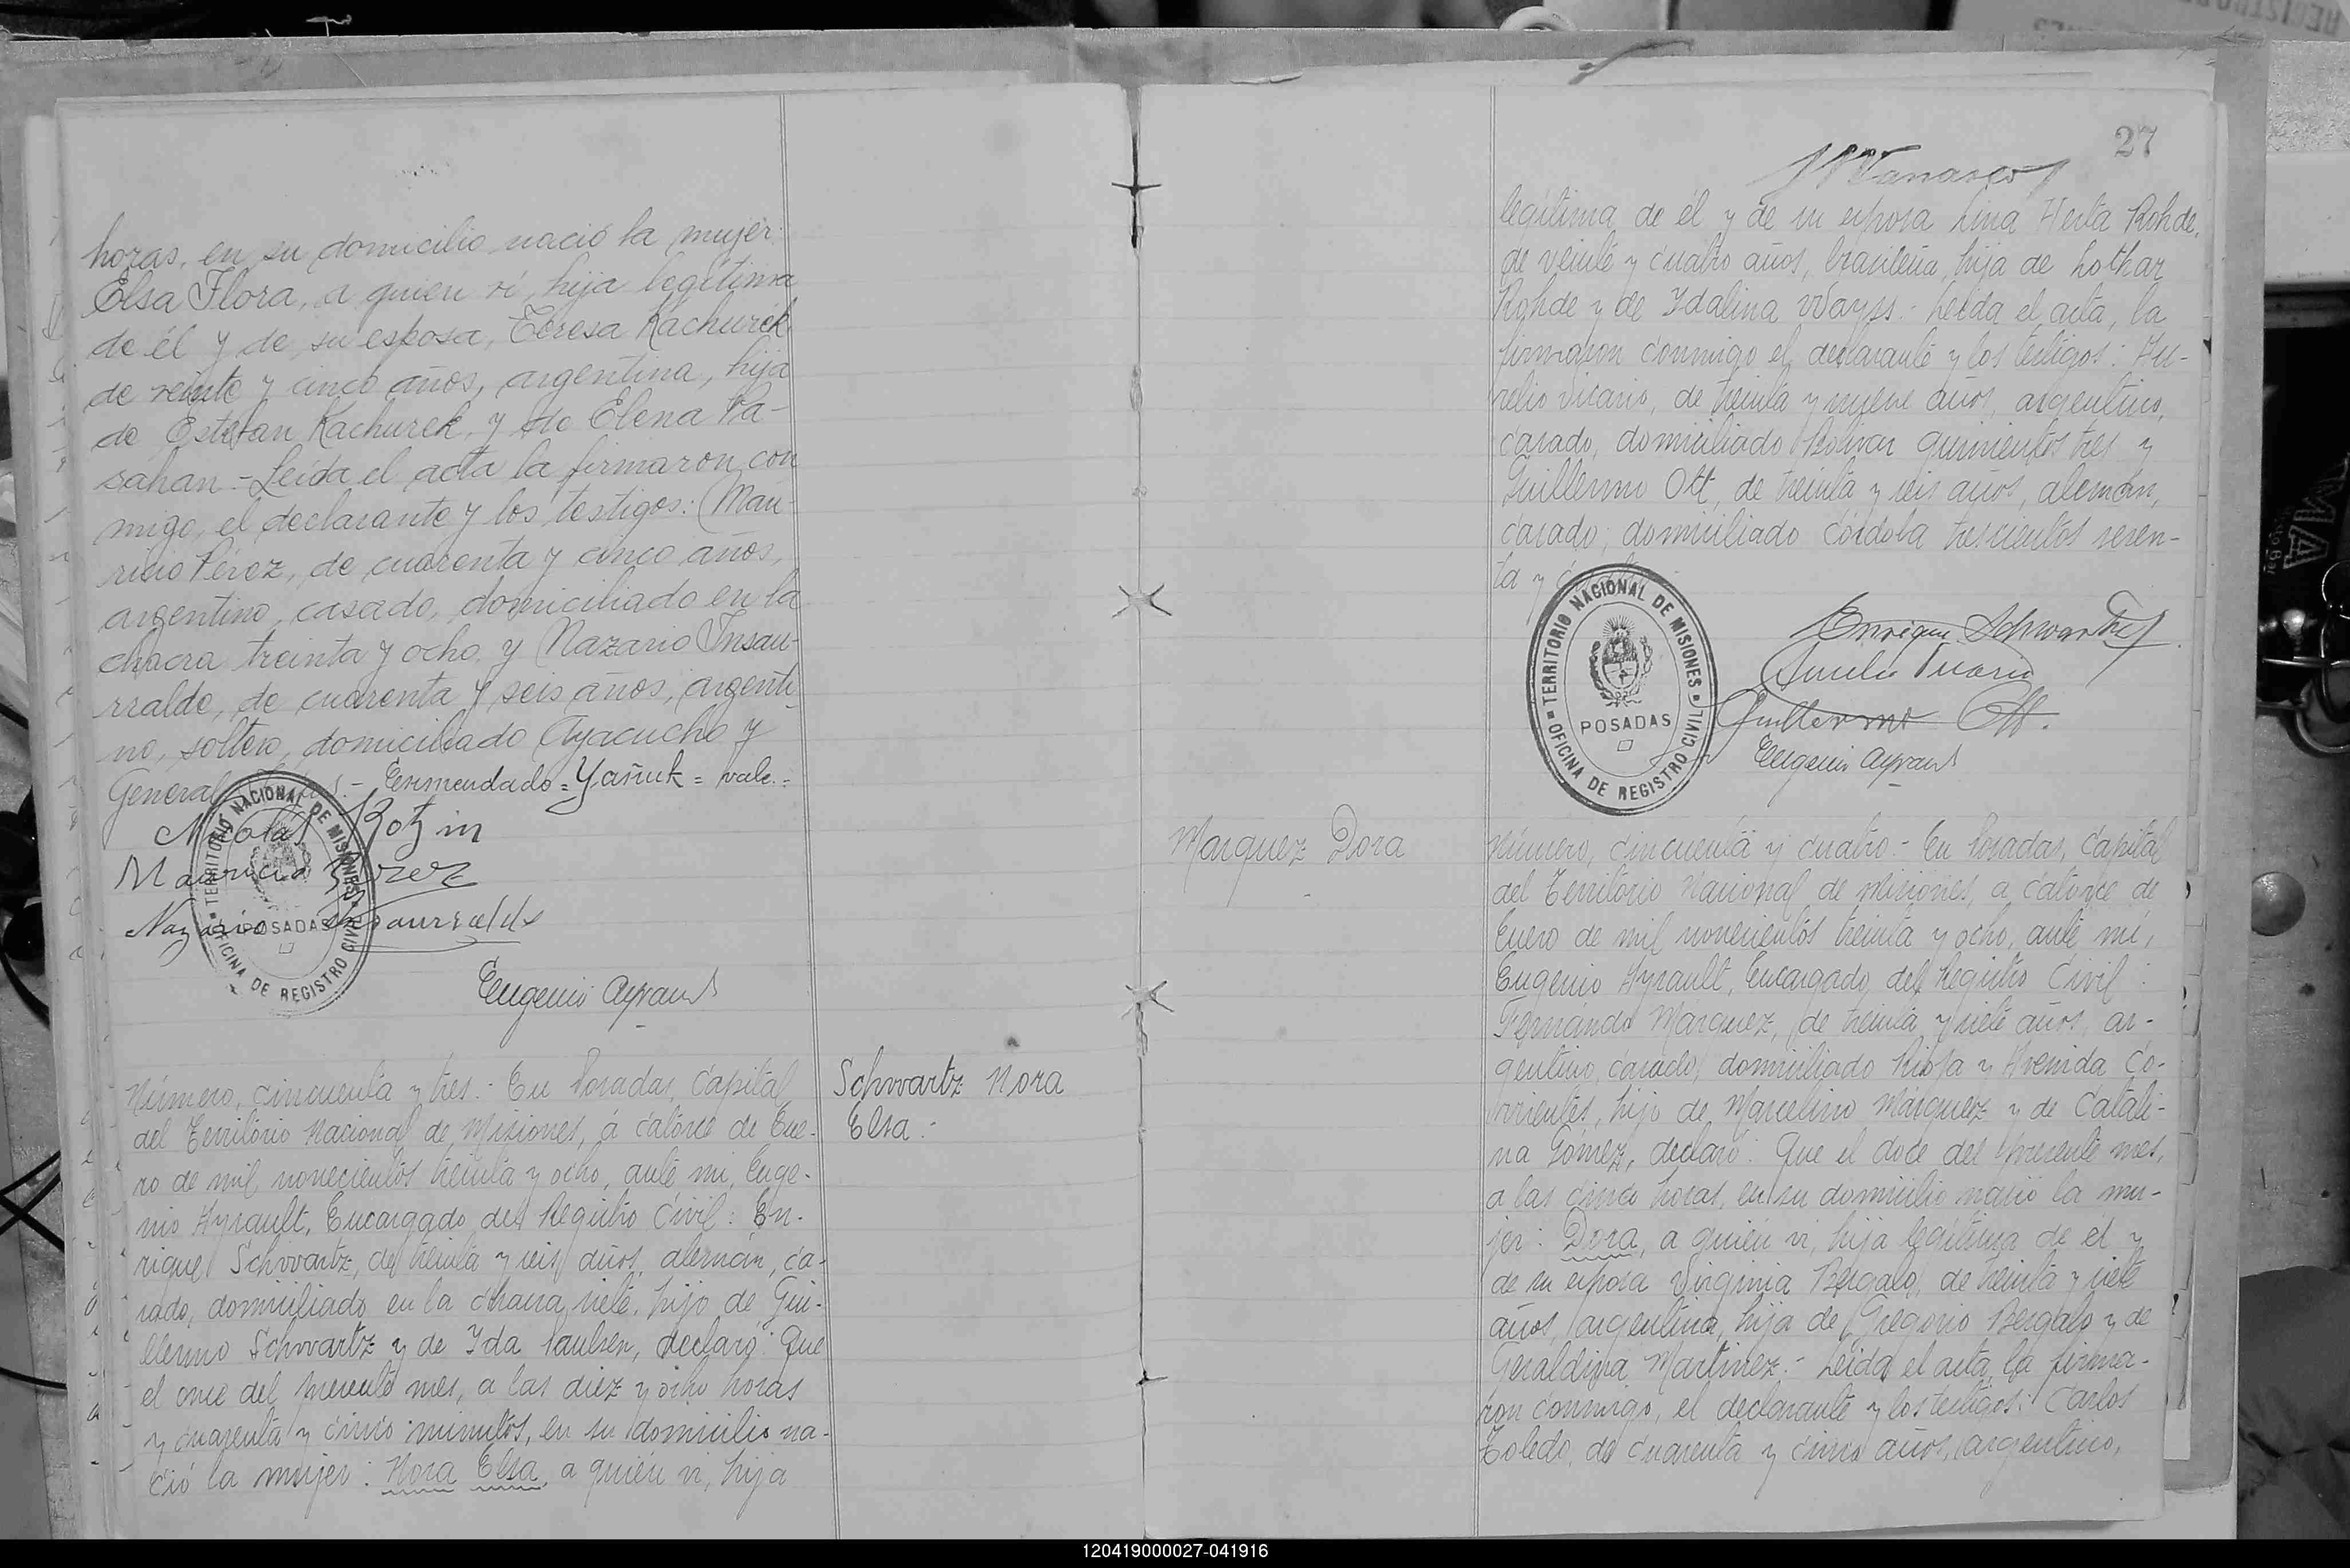 horas, en su domicilio nació la mujer:
Elsa Flora, a quien vi, hija legítima
de él y de su esposa, Teresa Kachurek
de veinte y cinco años, argentina, hija
de Estefan Kachurek, y de Elena Pa-
sahan.- Leída el acta la firmaron con
migo, el declarante y los testigos: Mau-
ricio Pérez, de cuarenta y cinco años,
argentino, casado, domiciliado en la
chacra treinta y ocho y Nazario Insau-
rralde, de cuarenta y seis años, argenti
no, soltero, domiciliado Ayacucho y
General .- Enmendado = Yañuk = vale.=
Nicolas Rotzin
Mauricio Perez
Nazario Insaurralde
TERRITORIO NACIONAL DE MISIONES
POSADAS
OFICINA DE REGISTRO CIVIL
Eugenio Ayrault
Número, cincuenta y tres.- En Posadas, Capital
del Territorio Nacional de Misiones, á catorce de Ene-
ro de mil novecientos treinta y ocho, ante mi, Euge-
nio Ayrault, Encargado del Registro Civil: En-
rique Schwartz, de treinta y seis años, alemán, ca-
sado, domiciliado en la chacra siete, hijo de Gui-
llermo Schwartz y de Yda Paulsen, declaró: Que
el once del presente mes, a las diez y ocho horas
y cuarenta y cinco minutos, en su domicilio na-
ció la mujer: Nora Elsa, a quien vi, hija
Schwartz Nora
Elsa.-
27
legítima de él y de su esposa Lina Herta Rohde,
de veinte y cuatro años, brasileña, hija de Lothar
Rohde y de Ydalina Wayss.- Leída el acta, la
firmaron conmigo el declarante y los testigos: Au-
relio Vicario, de treinta y nueve años, argentino,
casado, domiciliado Bolivar quinientos tres y
Guillermo Ott, de treinta y seis años, alemán,
casado, domiciliado Córdoba trescientos seten-
ta y
TERRITORIO NACIONAL DE MISIONES
POSADAS
OFICINA DE REGISTRO CIVIL
Enrique Schwartz
Aurelio Vicario
Guillermo Ott.
Eugenio Ayrault
Marquez Dora
Número, cincuenta y cuatro.- En Posadas, Capital
del Territorio Nacional de Misiones, a catorce de
Enero de mil novecientos treinta y ocho, ante mí,
Eugenio Ayrault, Encargado del Registro Civil:
Fernando Marquez, de treinta y siete años, ar-
gentino, casado, domiciliado Rioja y Avenida Co-
rrientes, hijo de Marcelino Márquez y de Catali-
na Gómez, declaró: Que el doce del presente mes,
a las cinco horas, en su domicilio nació la mu-
jer: Dora, a quien vi, hija legítima de él y
de su esposa Virginia Bergalo, de treinta y siete
años, argentina, hija de Gregorio Bergalo y de
Geraldina Martinez.- Leída el acta, la firma-
ron conmigo, el declarante y los testigos: Carlos
Toledo, de cuarenta y cinco años, argentino,
120419000027-041916